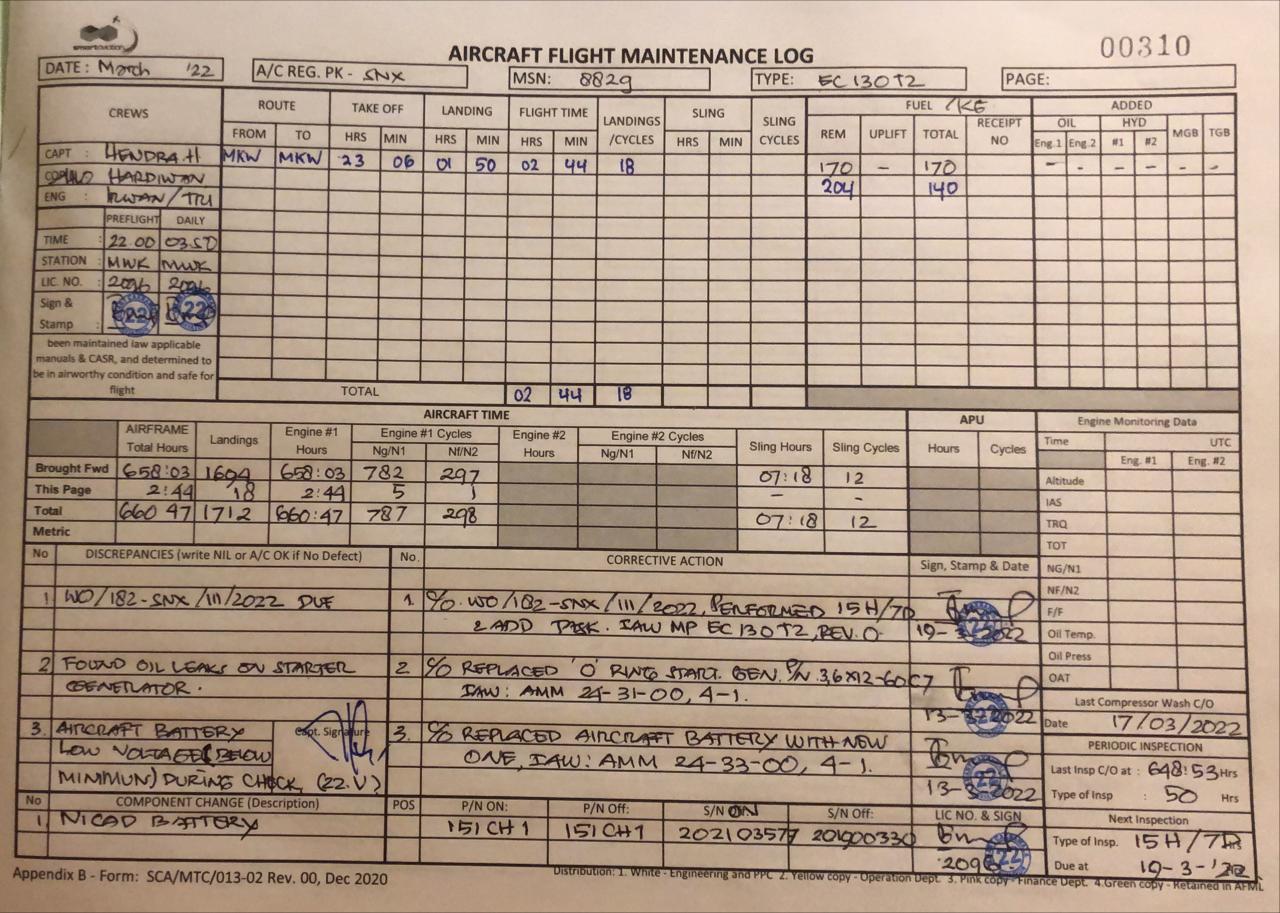 smartaviation
AIRCRAFT FLIGHT MAINTENANCE LOG
00310
DATE: March '22
A/C REG. PK - SNX
MSN: 8829
TYPE: EC 130 T2
PAGE:
CREWS ROUTE TAKE OFF LANDING FLIGHT TIME LANDINGS /CYCLES SLING SLING CYCLES FUEL /KG ADDED
FROM TO HRS MIN HRS MIN HRS MIN HRS MIN REM UPLIFT TOTAL RECEIPT NO OIL HYD MGB TGB
Eng.1 Eng.2 #1 #2
CAPT : HENDRA.H MKW MKW 23 06 01 50 02 44 18 170 - 170 - - - - - -
HARDIWAN 204 140
ENG : IRWAN/TRI
PREFLIGHT DAILY
TIME : 22.00 03.50
STATION : MWK MWK
LIC. NO. : 2096 2096
Sign & Stamp : 22 22
been maintained law applicable
manuals & CASR, and determined to
be in airworthy condition and safe for
flight
TOTAL 02 44 18
AIRCRAFT TIME APU Engine Monitoring Data
AIRFRAME Total Hours Landings Engine #1 Hours Engine #1 Cycles Engine #2 Hours Engine #2 Cycles Sling Hours Sling Cycles Hours Cycles
Ng/N1 Nf/N2 Ng/N1 Nf/N2
Brought Fwd 658:03 1694 658:03 782 297 07:18 12
This Page 2:44 18 2:44 5 1 - -
Total 660 47 1712 660:47 787 298 07:18 12
Metric
Time UTC
Eng. #1 Eng. #2
Altitude
IAS
TRQ
TOT
NG/N1
NF/N2
F/F
Oil Temp.
Oil Press
OAT
No DISCREPANCIES (write NIL or A/C OK if No Defect) No. CORRECTIVE ACTION Sign, Stamp & Date
1 WO/182-SNX/III/2022 DUE 1. C/O. WO/182-SNX/III/2022, PERFORMED 15H/7D
& ADD TASK. IAW MP EC 130T2, REV. 0. 22 19-3-2022
2 FOUND OIL LEAKS ON STARTER 2 C/O REPLACED 'O' RING START. GEN. P/N. 3,6X12-60C7
GENERATOR. IAW: AMM 24-31-00, 4-1. 22 13-3-2022
3. AIRCRAFT BATTERY Capt. Signature 3. C/O REPLACED AIRCRAFT BATTERY WITH NEW
LOW VOLTAGE (BELOW ONE, IAW: AMM 24-33-00, 4-1. 22
MINIMUN) DURING CHECK, (22.V) 13-3-2022
Last Compressor Wash C/O
Date 17/03/2022
PERIODIC INSPECTION
Last Insp C/O at : 648:53 Hrs
Type of Insp : 50 Hrs
Next Inspection
Type of Insp. 15H/7D Hrs
Due at 19-3-'22
No COMPONENT CHANGE (Description) POS P/N ON: P/N Off: S/N ON S/N Off: LIC NO. & SIGN
1. NICAD BATTERY 151CH1 151CH1 202103577 201900330
2096 22
Appendix B - Form: SCA/MTC/013-02 Rev. 00, Dec 2020
Distribution: 1. White - Engineering and PPC 2. Yellow copy - Operation Dept. 3. Pink copy - Finance Dept. 4.Green copy - Retained in AFML